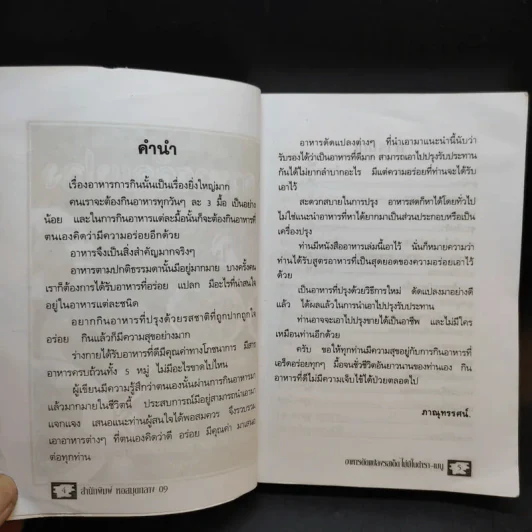 คำนำ
เรื่องอาหารการกินนั้นเป็นเรื่องยิ่งใหญ่มาก
คนเราจะต้องกินอาหารทุกวันๆ ละ 3 มื้อ เป็นอย่าง
น้อย และในการกินอาหารแต่ละมื้อนั้นก็จะต้องกินอาหารที่
ตนเองคิดว่ามีความอร่อยอีกด้วย
อาหารจึงเป็นสิ่งสำคัญมากจริงๆ
อาหารตามปกติธรรมดานั้นมีอยู่มากมาย บางครั้งคน
เราก็ต้องการได้รับอาหารที่อร่อย แปลก มีอะไรที่น่าสนใจ
อยู่ในอาหารแต่ละชนิด
อยากกินอาหารที่ปรุงด้วยรสชาติที่ถูกปากถูกใจ
อร่อย กินแล้วก็มีความสุขอย่างมาก
ร่างกายได้รับอาหารที่ดีมีคุณค่าทางโภชนาการ มีสาร
อาหารครบถ้วนทั้ง 5 หมู่ ไม่มีอะไรขาดไปไหน
ผู้เขียนมีความรู้สึกว่าตนเองนั้นผ่านการกินอาหารมา
แล้วมากมายในชีวิตนี้ ประสบการณ์มีอยู่สามารถนำเอามา
แจกแจง เสนอแนะท่านผู้สนใจได้พอสมควร จึงรวบรวม
เอาอาหารต่างๆ ที่ตนเองคิดว่าดี อร่อย มีคุณค่า มาเสนอ
ต่อทุกท่าน
4 สำนักพิมพ์ หอสมุดกลาง 09
อาหารดัดแปลงต่างๆ ที่นำเอามาแนะนำนี้นับว่า
รับรองได้ว่าเป็นอาหารที่ดีมาก สามารถเอาไปปรุงรับประทาน
กันได้ไม่ยากลำบากอะไร มีแต่ความอร่อยที่ท่านจะได้รับ
เอาไว้
สะดวกสบายในการปรุง อาหารสดก็หาได้โดยทั่วไป
ไม่ใช่แนะนำอาหารที่หาได้ยากมาเป็นส่วนประกอบหรือเป็น
เครื่องปรุง
ท่านมีหนังสืออาหารเล่มนี้เอาไว้ นั่นก็หมายความว่า
ท่านได้รับสูตรอาหารที่เป็นสุดยอดของความอร่อยเอาไว้
ด้วย
เป็นอาหารที่ปรุงด้วยวิธีการใหม่ ดัดแปลงมาอย่างดี
แล้ว ได้ผลแล้วในการนำเอาไปปรุงรับประทาน
ท่านอาจจะเอาไปปรุงขายได้เป็นอาชีพ และไม่มีใคร
เหมือนท่านอีกด้วย
ครับ ขอให้ทุกท่านมีความสุขอยู่กับการกินอาหารที่
เอร็ดอร่อยทุกๆ มื้อจนชั่วชีวิตอันยาวนานของท่านเอง กิน
อาหารที่ดีไม่มีความเจ็บไข้ได้ป่วยตลอดไป
ภาณุทรรศน์
อาหารดัดแปลงรสเด็ด 5